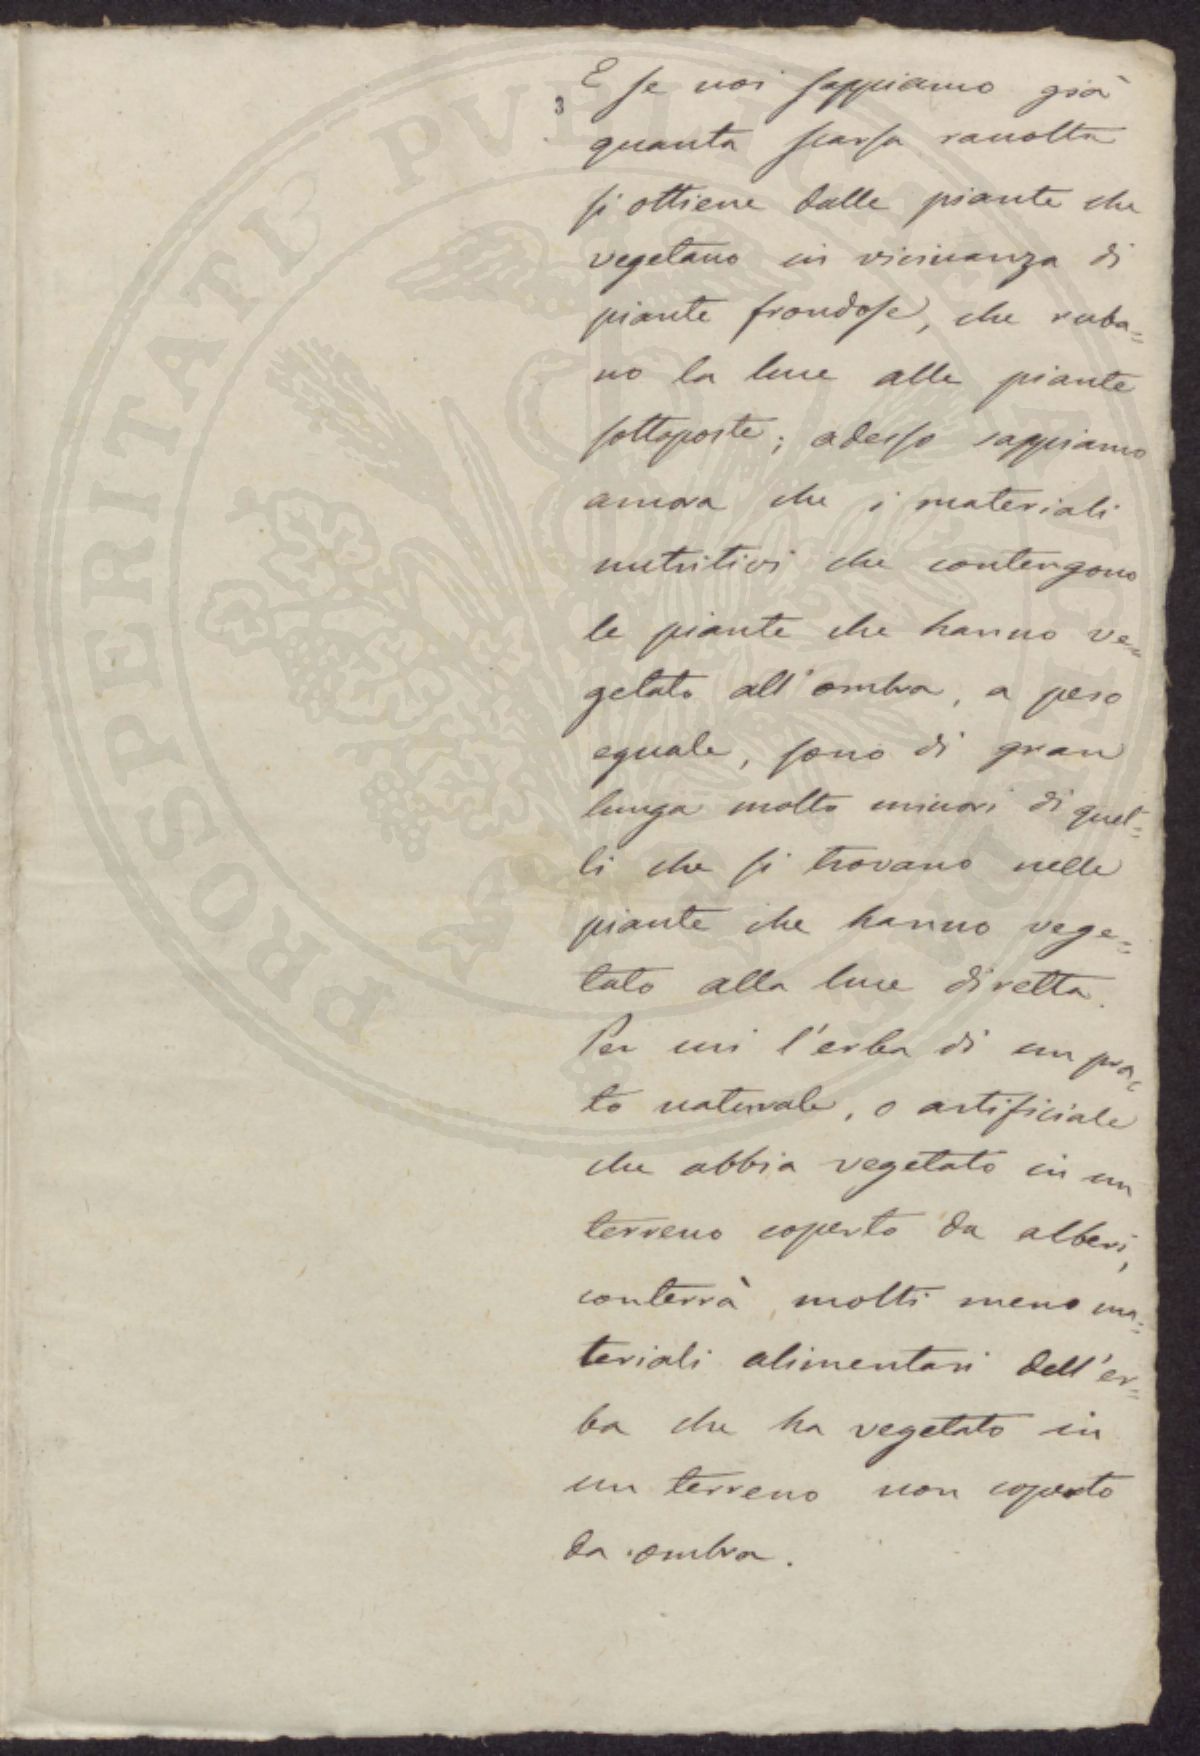 3
E se noi sappiamo già
quanta scarsa raccolta
si ottiene dalle piante che
vegetano in vicinanza di
piante frondose, che ruba=
no la luce alle piante
sottoposte; adesso sappiamo
ancora che i materiali
nutritivi che contengono
le piante che hanno ve=
getato all'ombra, a peso
eguale, sono di gran
lunga molto minori di quel=
li che si trovano nelle
piante che hanno vege=
tato alla luce diretta.
Per cui l'erba di un pra=
to naturale, o artificiale
che abbia vegetato in un
terreno coperto da alberi,
conterrà molti meno ma=
teriali alimentari dell'er=
ba che ha vegetato in
un terreno non coperto
da ombra.
PROSPERITATI PVBLICAE